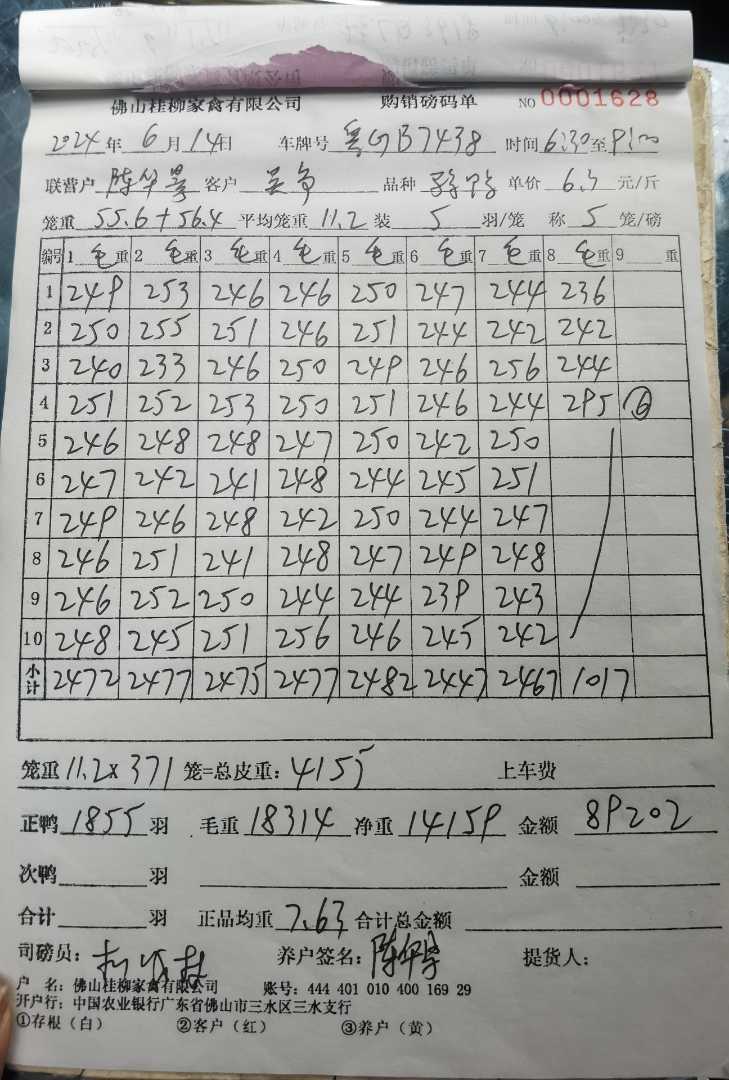 佛山桂柳家禽有限公司 购销磅码单 NO 0001628
2024年 6月 14日 车牌号 粤GB7438 时间 6:30至 9:00
联营户 陈华 客户 单价 6.3 元/斤 品种
笼重 55.6+56.4 平均笼重 11.2 装 5 羽/笼 称 5 笼/磅
编号 1 毛重 2 毛重 3 毛重 4 毛重 5 毛重 6 毛重 7 毛重 8 毛重 9 重
1 249 253 246 246 250 247 244 236
2 250 255 251 246 251 244 242 242
3 240 233 246 250 249 246 256 244
4 251 252 253 250 251 246 244 295 ⑥
5 246 248 248 247 250 242 250
6 247 242 241 248 244 245 251
7 249 246 248 242 250 244 247
8 246 251 241 248 247 249 248
9 246 252 250 244 244 239 243
10 248 245 251 256 246 245 242
小计 2472 2477 2475 2477 2482 2447 2467 1017
笼重 11.2× 371 笼=总皮重: 4155 上车费
正鸭 1855 羽 毛重 18314 净重 14159 金额 89202
次鸭 羽 金额
合计 羽 正品均重 7.63 合计总金额
司磅员: 养户签名: 陈华 提货人:
户 名: 佛山桂柳家禽有限公司 账号: 444 401 010 400 169 29
开户行: 中国农业银行广东省佛山市三水区三水支行
①存根(白) ②客户(红) ③养户(黄)